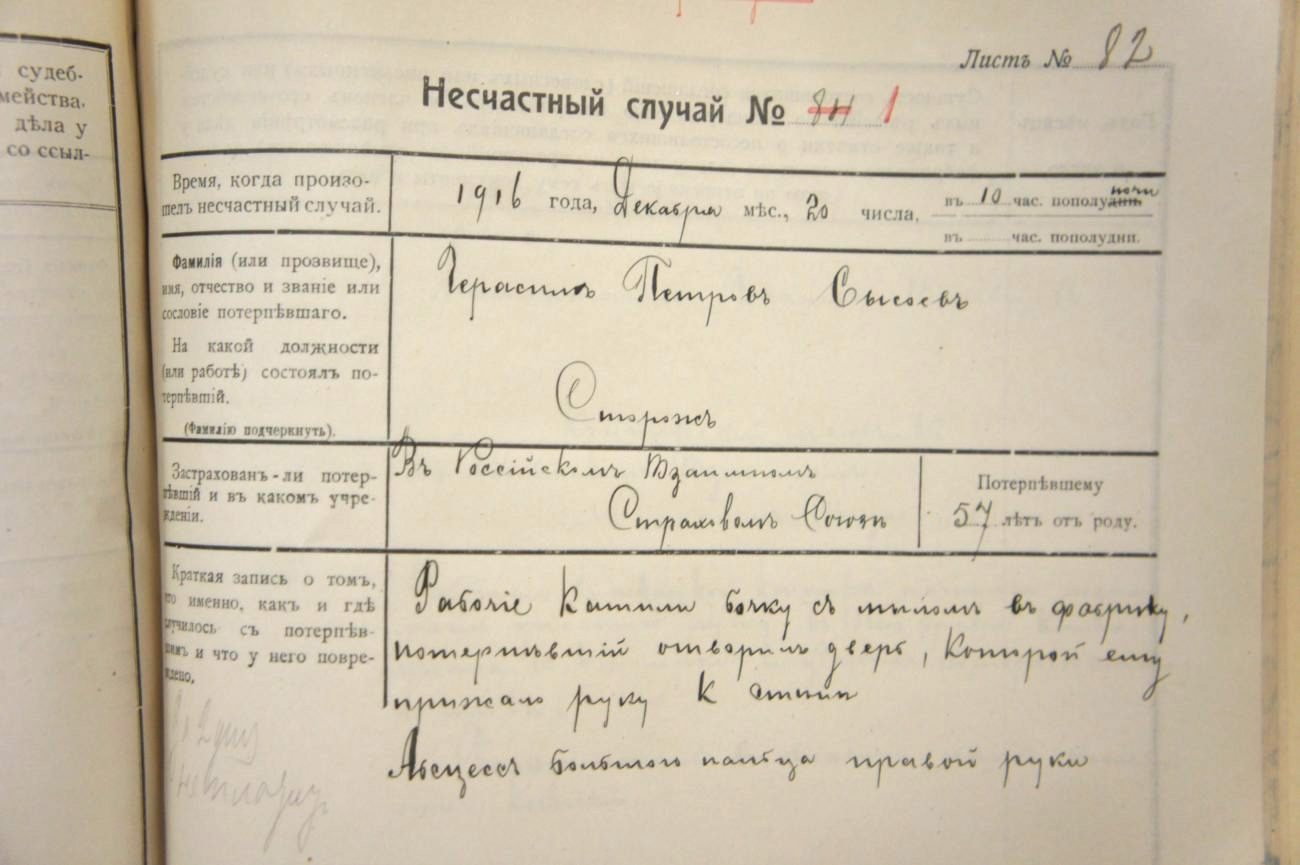 судеб-
мейства.
дѣла у
со ссыл-
Листъ № 82
Несчастный случай № 84 1
Время, когда произо-
шелъ несчастный случай.
1916 года, Декабря мѣс., 20 числа,
въ 10 час. пополудни ночи
въ час. пополудни.
Фамилія (или прозвище),
имя, отчество и званіе или
сословіе потерпѣвшаго.
На какой должности
(или работѣ) состоялъ по-
терпѣвшій.
(Фамилію подчеркнуть).
Герасимъ Петровъ Сысоевъ
Сторожъ
Застрахованъ-ли потер-
пѣвшій и въ какомъ учре-
жденіи.
Въ Россійскомъ Взаимномъ
Страховомъ Союзѣ
Потерпѣвшему
57 лѣтъ отъ роду.
Краткая запись о томъ,
что именно, какъ и гдѣ
случилось съ потерпѣв-
шимъ и что у него повре-
ждено.
Рабочіе катили бочку съ мыломъ въ фабрику,
потерпѣвшій отворилъ дверь, которой ему
прижало руку къ стѣнѣ
Абсцессъ большого пальца правой руки